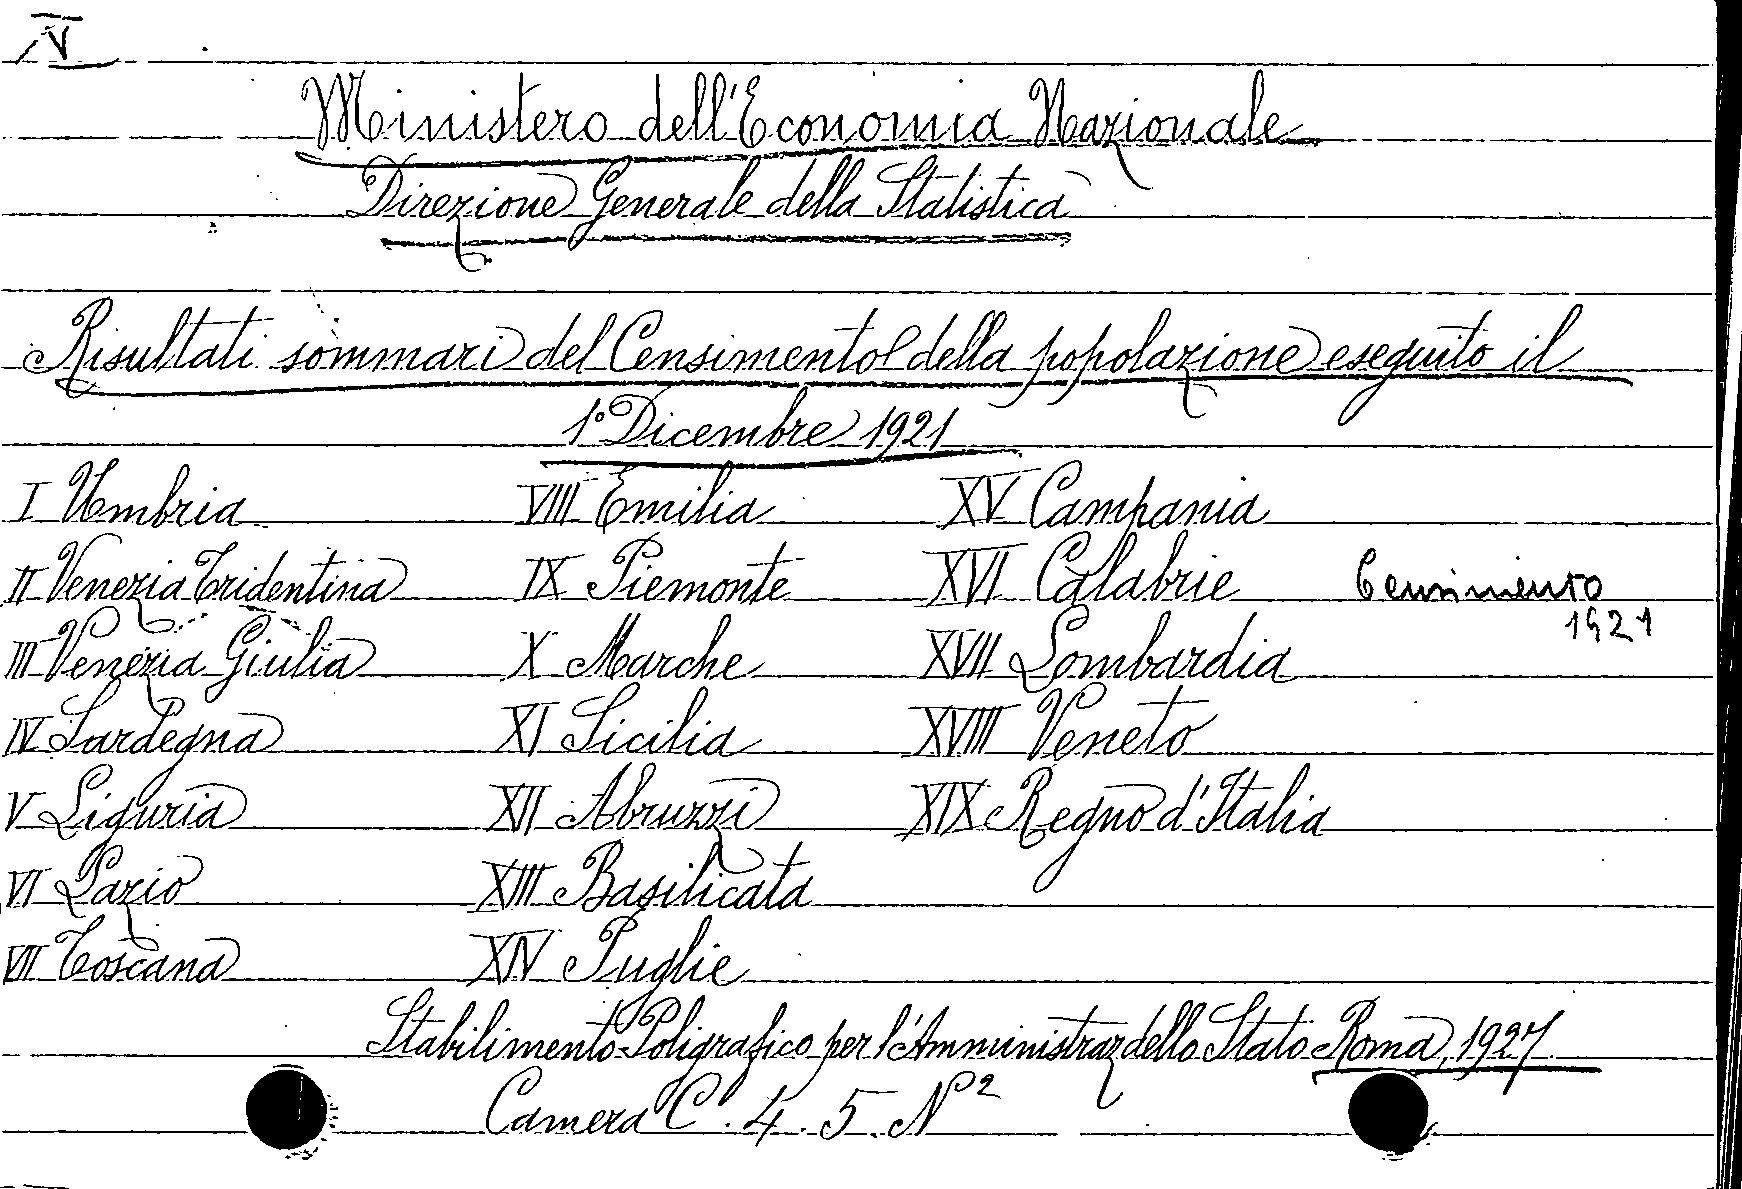 V
Ministero dell'Economia Nazionale
Direzione Generale della Statistica
Risultati sommari del Censimento della popolazione eseguito il
1° Dicembre 1921
I Umbria VIII Emilia XV Campania
II Venezia Tridentina IX Piemonte XVI Calabrie Censimento
1921
III Venezia Giulia X Marche XVII Lombardia
IV Sardegna XI Sicilia XVIII Veneto
V Liguria XII Abruzzi XIX Regno d'Italia
VI Lazio XIII Basilicata
VII Toscana XIV Puglie
Stabilimento Poligrafico per l'Amministraz dello Stato Roma, 1927
Camera C. 4. 5. N 2